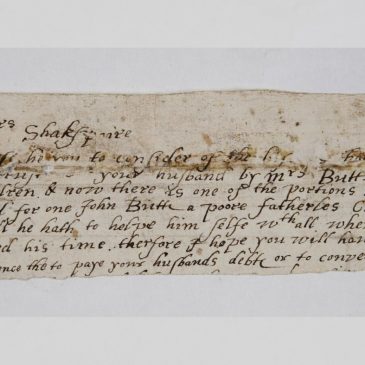 rs Shakspaire
he you to consider of the
your husband by mrs Butt
ren & now there is one of the portions
for one John Butte a poore fatherles C
he hath to helpe him selfe wth all wher
d his time, therfore I hope you will hav
nce the to paye your husbands debte or to conve